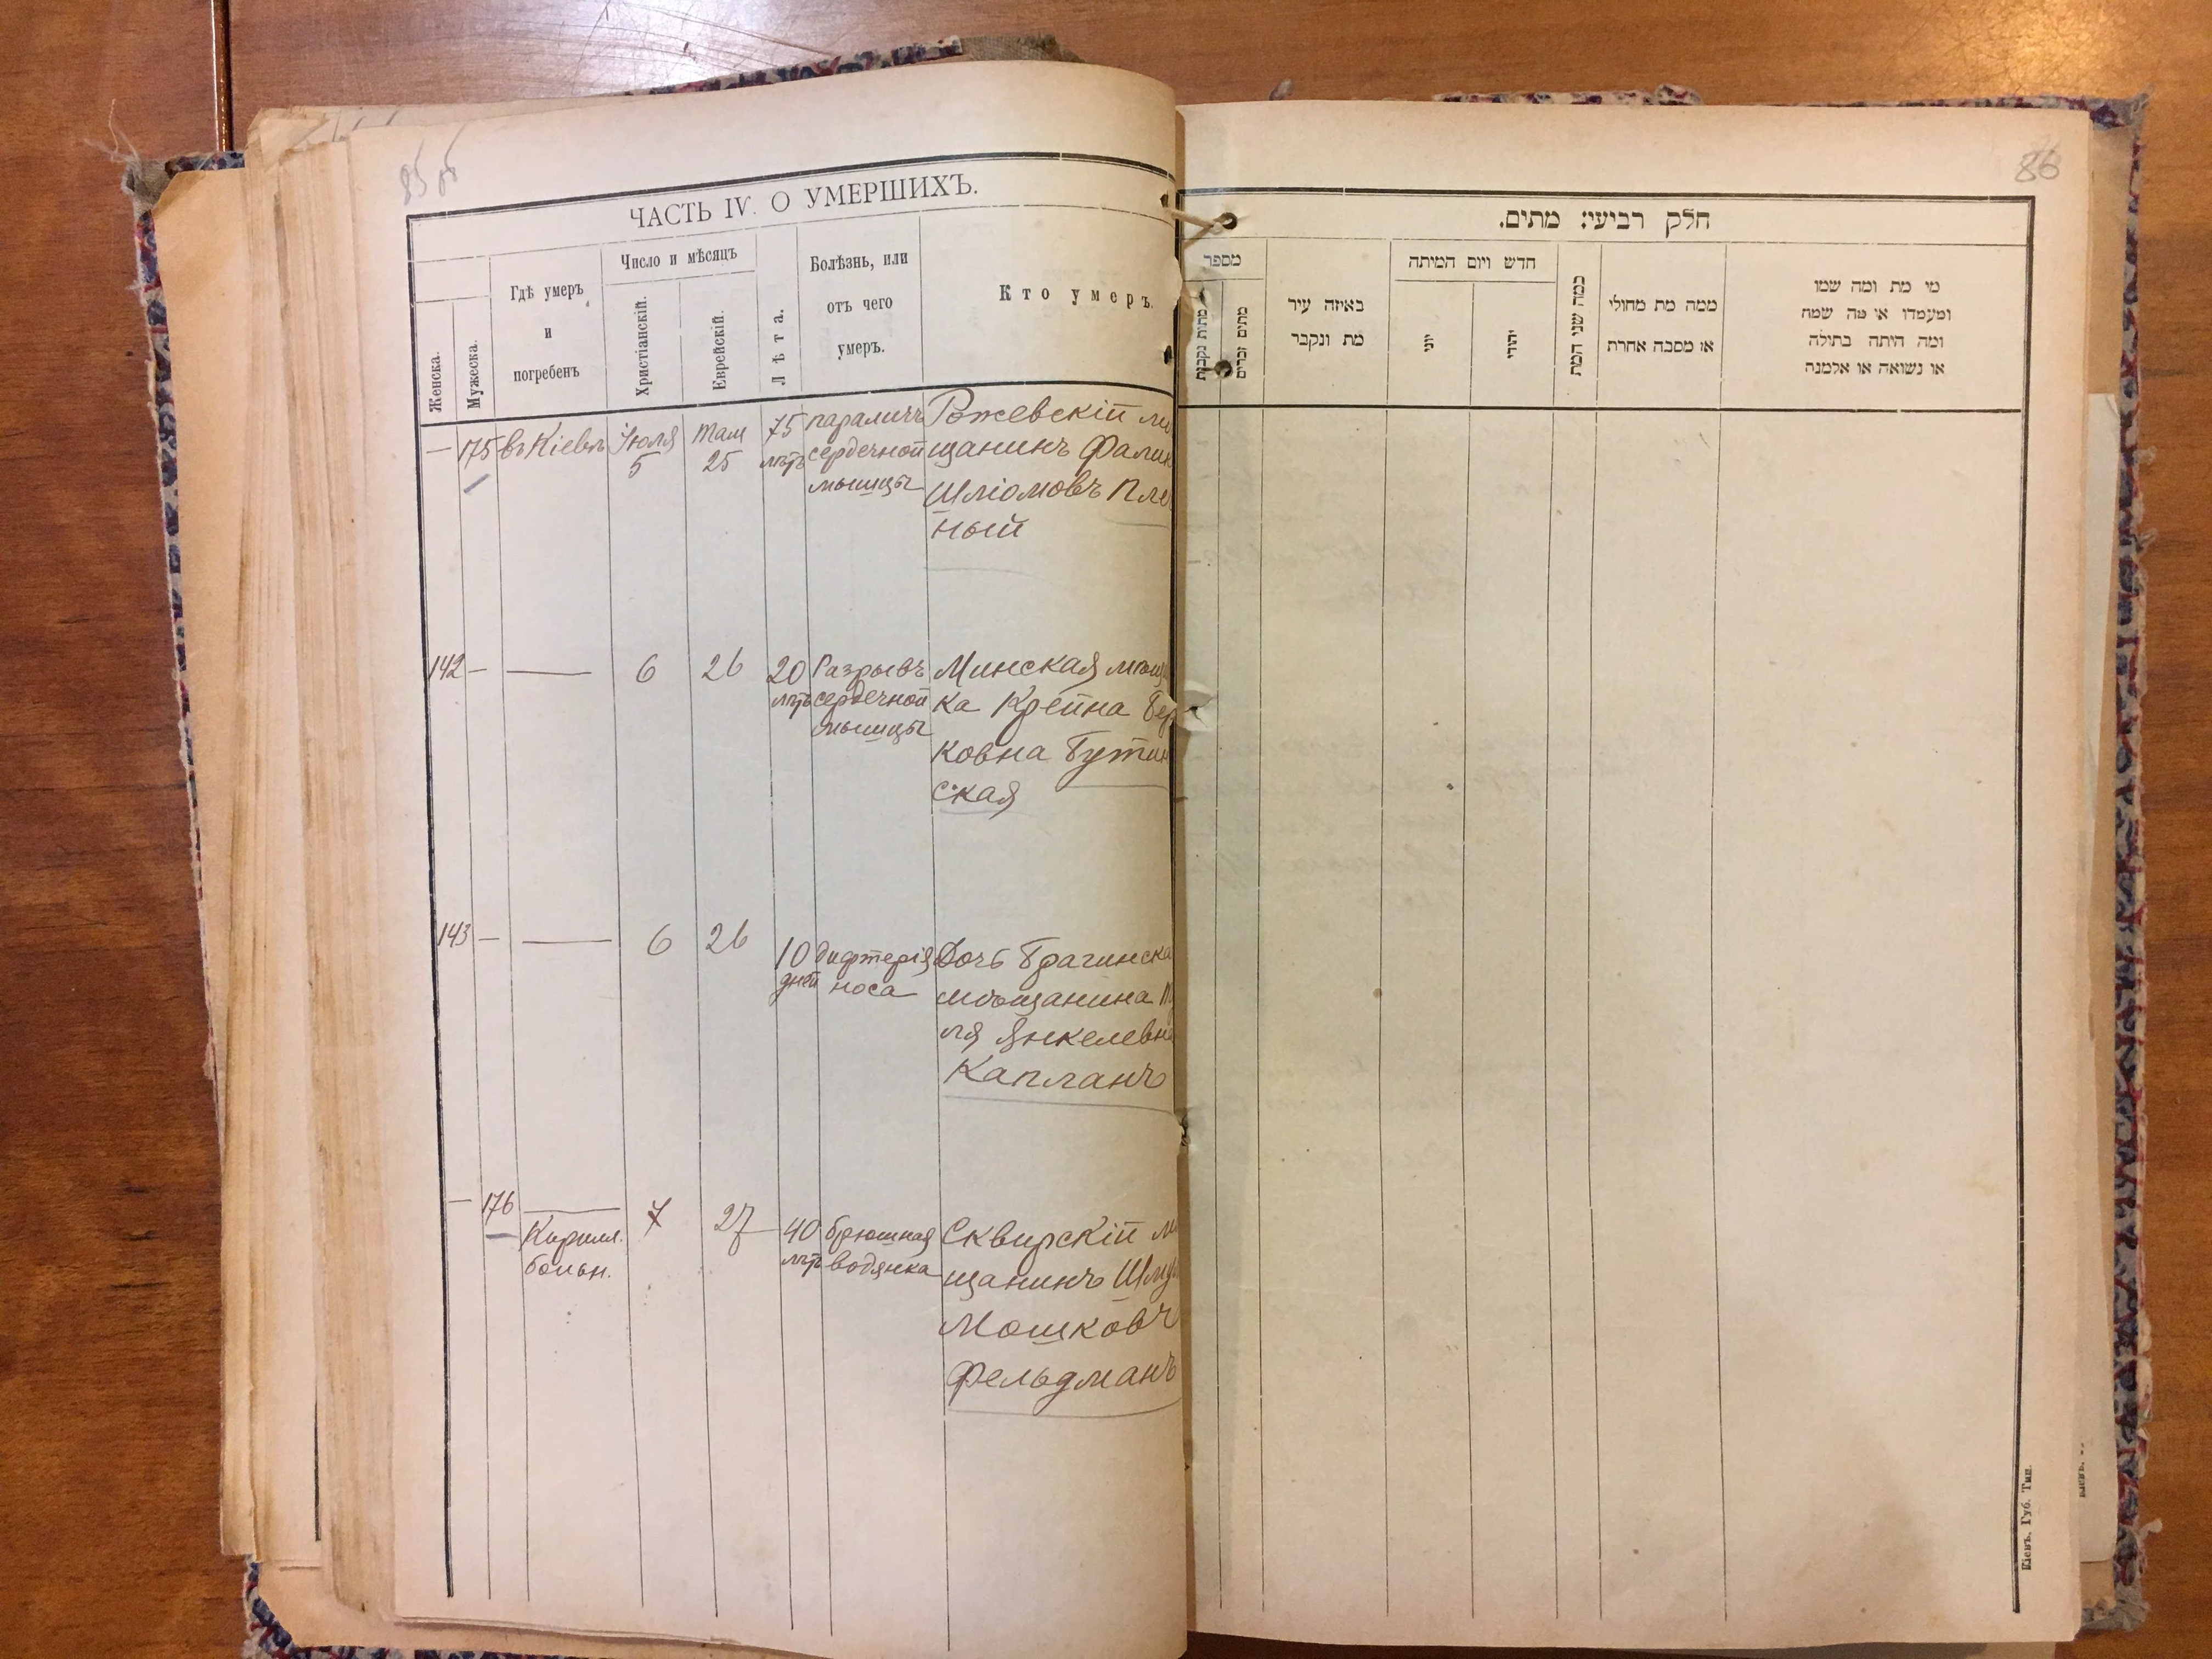 86
ЧАСТЬ IV. О УМЕРШИХЪ.
Женска.
Мужеска.
Гдѣ умеръ
и
погребенъ
Число и мѣсяцъ
Христіанскій.
Еврейскій.
Лѣта.
Болѣзнь, или
отъ чего
умеръ.
Кто умеръ.
— 175 въ Кіевѣ Іюля 5 Там 25 75 лѣтъ
параличъ
сердечной
мышцы
Рожевскій мѣ
щанинъ
Шліомовъ
ный
142 — — 6 26 20 лѣтъ
Разрывъ
сердечной
мышцы
Минская мѣщ
ка Крейна Бер
ковна Бутин
ская
143 — — 6 26 10 дней
дифтерія
носа
Дочь Брагинска
мѣщанина
ля Янкелевна
Капланъ
— 176 —
Кирилл.
больн.
7 27 40 лѣтъ
брюшная
водянка
Сквирскій мѣ
щанинъ
Мошковъ
Фельдманъ
חלק רביעי: מתים.
מספר
מתות נקבות
מתים זכרים
באיזה עיר
מת ונקבר
חדש ויום המיתה
יוני
יהודי
כמה שני המת
ממה מת מחולי
או מסבה אחרת
מי מת ומה שמו
ומעמדו או מה שמה
ומה היתה בתולה
או נשואה או אלמנה
Кіевъ, Губ. Тип.